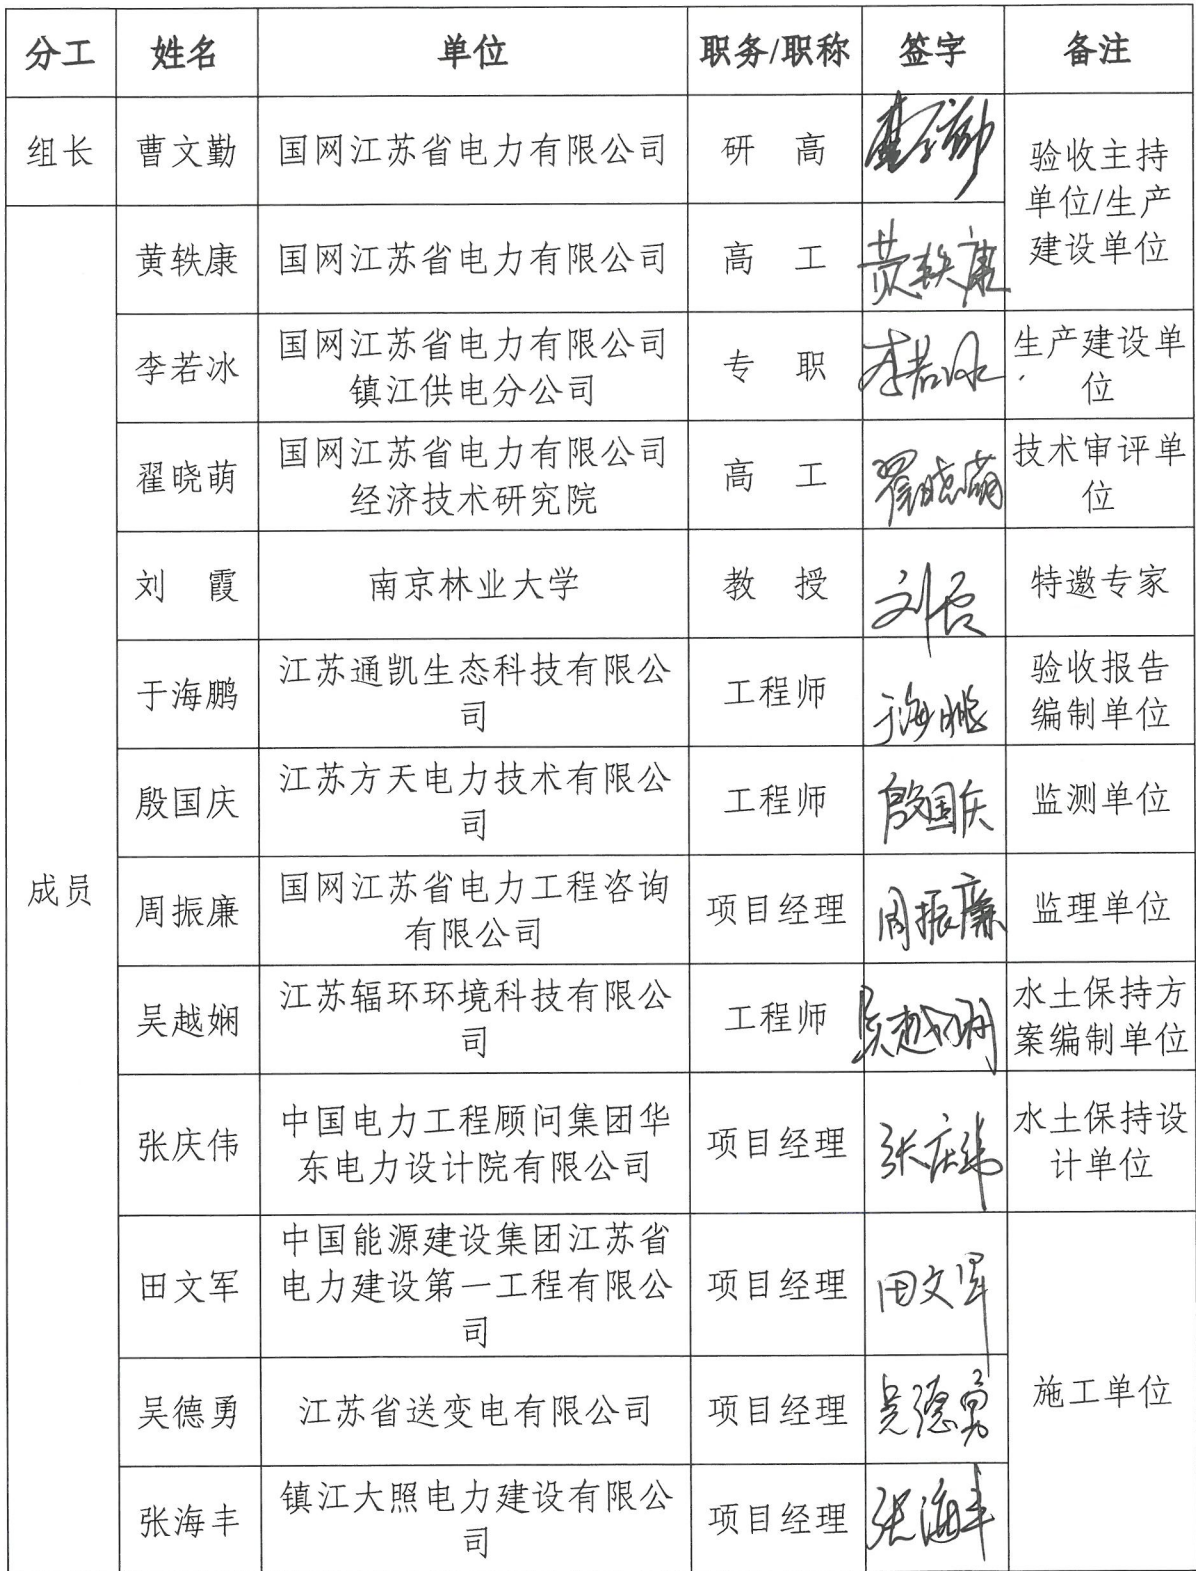 分工 姓名 单位 职务/职称 签字 备注
组长 曹文勤 国网江苏省电力有限公司 研 高 曹文勤 验收主持
单位/生产
建设单位
成员 黄轶康 国网江苏省电力有限公司 高 工 黄轶康
李若冰 国网江苏省电力有限公司
镇江供电分公司 专 职 李若冰 生产建设单
位
翟晓萌 国网江苏省电力有限公司
经济技术研究院 高 工 翟晓萌 技术审评单
位
刘 霞 南京林业大学 教 授 刘霞 特邀专家
于海鹏 江苏通凯生态科技有限公
司 工程师 于海鹏 验收报告
编制单位
殷国庆 江苏方天电力技术有限公
司 工程师 殷国庆 监测单位
周振廉 国网江苏省电力工程咨询
有限公司 项目经理 周振廉 监理单位
吴越娴 江苏辐环环境科技有限公
司 工程师 吴越娴 水土保持方
案编制单位
张庆伟 中国电力工程顾问集团华
东电力设计院有限公司 项目经理 张庆伟 水土保持设
计单位
田文军 中国能源建设集团江苏省
电力建设第一工程有限公
司 项目经理 田文军 施工单位
吴德勇 江苏省送变电有限公司 项目经理 吴德勇
张海丰 镇江大照电力建设有限公
司 项目经理 张海丰